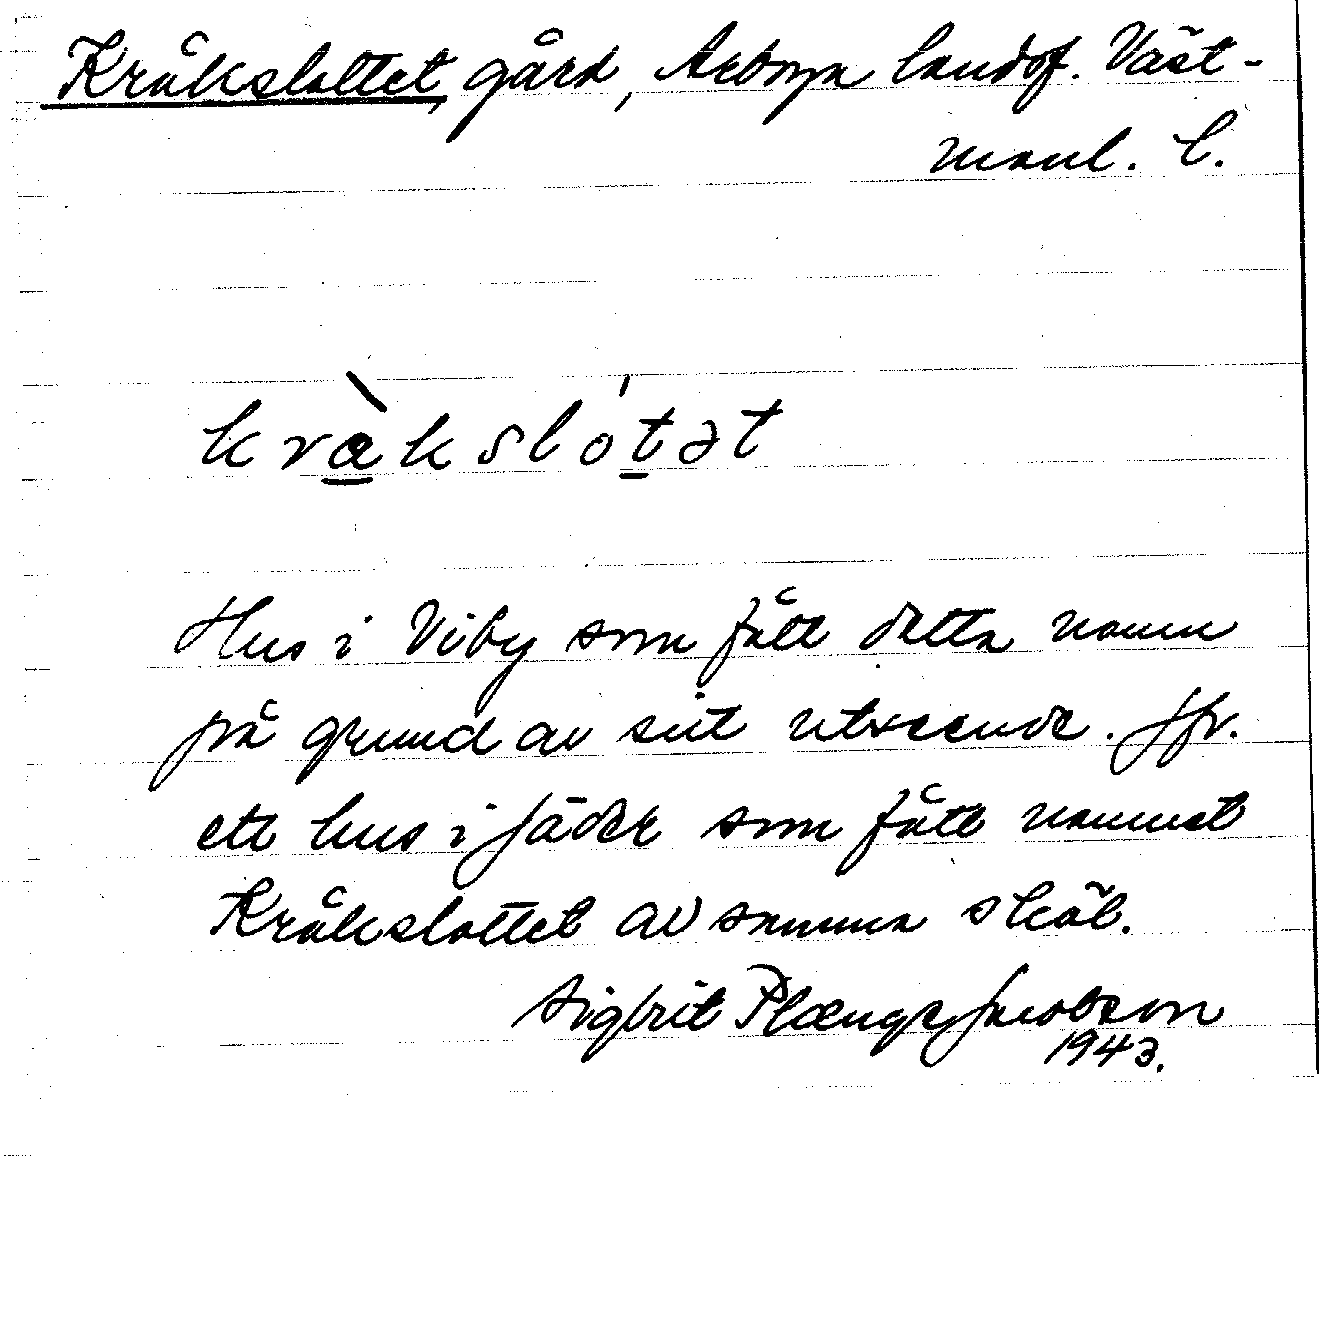 Kråkslottet, gård, Arboga landsf. Väst-
manl. l.
kràkslótət
Hus i Viby som fått detta namn
på grund av sitt utseende. Jfr.
ett hus i Jäder som fått namnet
Kråkslottet av samma skäl.
Sigbrit Plænge Jacobson
1943.